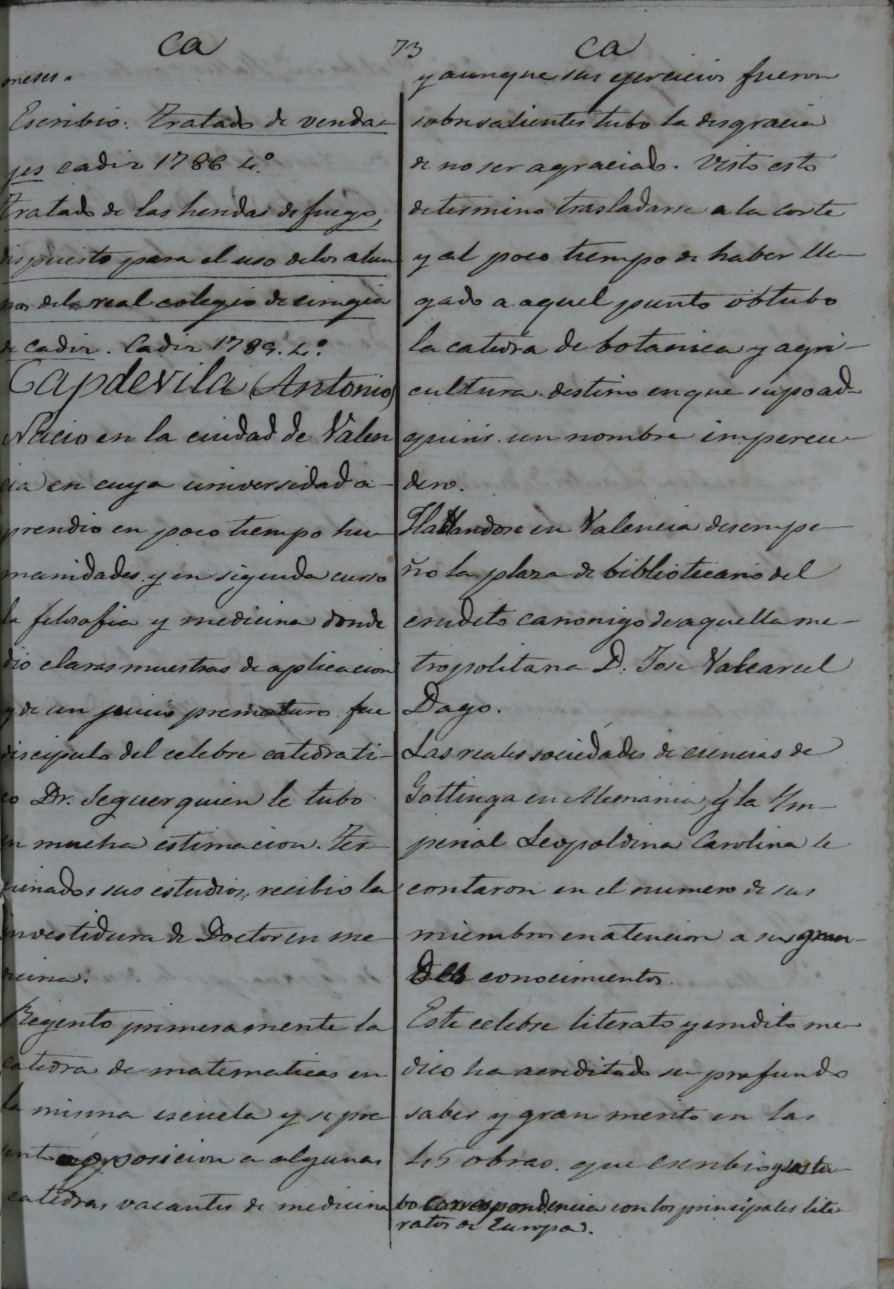 Ca 73 Ca
meses.
Escribio: Tratado de venda-
jes cadiz 1786 4.º
Tratado de las heridas de fuego,
dispuesto para el uso de los alum
nos del real colegio de cirugia
de cadiz. Cadiz 1789. 4.º
Capdevila (Antonio)
Nacio en la ciudad de Valen
cia en cuya universidad a-
prendio en poco tiempo hu-
manidades y en seguida curso
la filosofia y medicina donde
dio claras muestras de aplicacion
y de un juicio prematuro. fue
discipulo del celebre catedrati-
co Dr. Seguer quien le tubo
en mucha estimacion. Ter-
minados sus estudios, recibio la
investidura de Doctor en me-
dicina.
Regento primeramente la
catedra de matematicas en
la misma escuela y se pre
sento a oposicion a algunas
catedras vacantes de medicina
y aunque sus ejercicios fueron
sobresalientes tubo la desgracia
de no ser agraciado. Visto esto
determino trasladarse a la corte
y al poco tiempo de haber lle-
gado a aquel punto obtubo
la catedra de botanica y agri-
cultura destino en que supo ad-
quirir un nombre imperece-
dero.
Hallandose en Valencia desempe-
ño la plaza de bibliotecario del
erudito canonigo de aquella me-
tropolitana D. Jose Valcarcel
Dago.
Las reales sociedades de ciencias de
Gottinga en Alemania, y la Im-
perial Leopoldina Carolina le
contaron en el numero de sus
miembros en atencion a sus gran-
des conocimientos.
Este celebre literato y erudito me-
dico ha acreditado su profundo
saber y gran merito en las
45 obras que escribio y sostu-
bo correspondencia con los principales lite-
ratos de Europa.